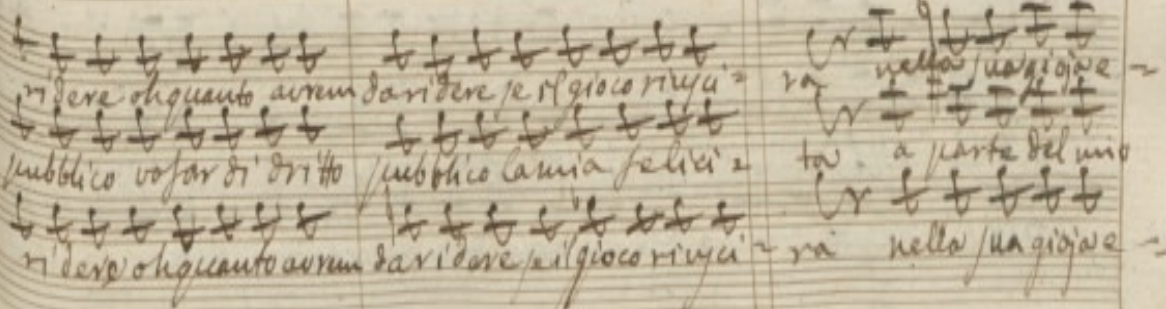 ridere oh quanto avrem da ridere se il gioco riusci= rà nella sua gioja e =
pubblico vo far di dritto pubblico la mia felici= tà. a parte del mio
ridere oh quanto avrem da ridere se il gioco riusci= rà nella sua gioja e =